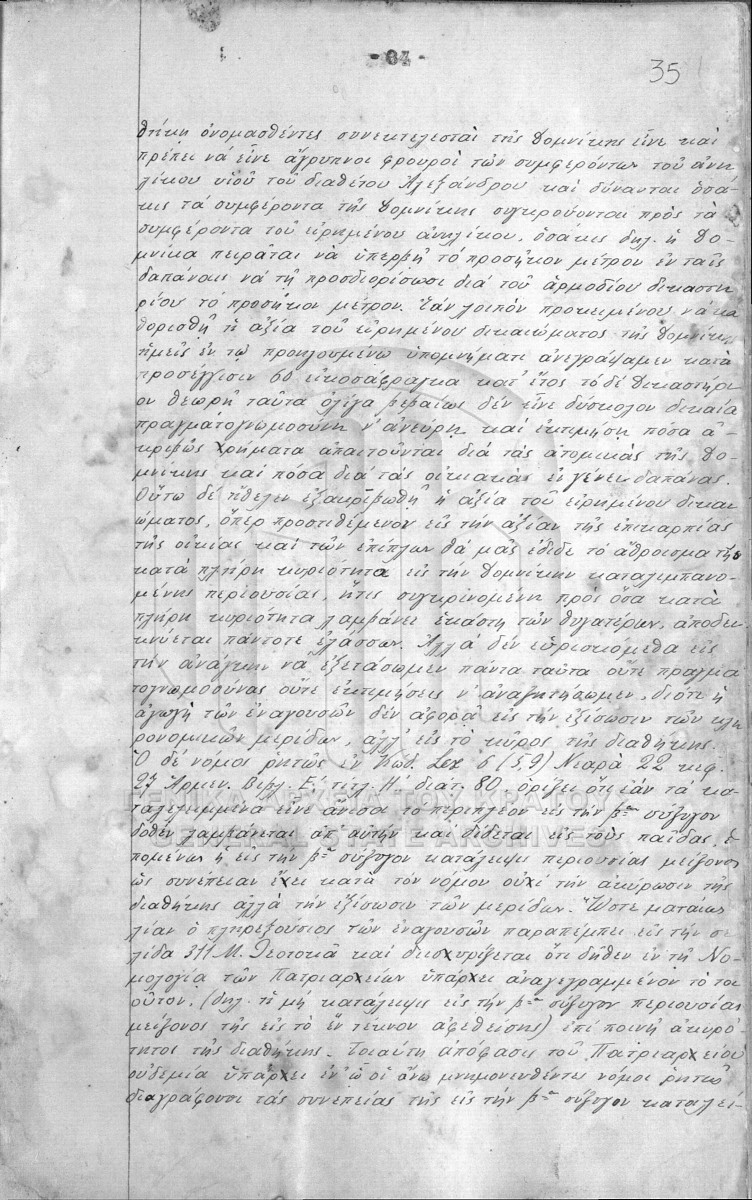 - 84 -
35
θήκῃ ὀνομασθέντες συνεκτελεσταὶ τῆς Δομνίκης εἶνε καὶ
πρέπει νά εἶνε ἄγρυπνοι φρουροὶ τῶν συμφερόντων τοῦ ἀνη
λίκου υἱοῦ τοῦ διαθέτου Ἀλεξάνδρου καὶ δύνανται ὁσά-
κις τά συμφέροντα τῆς Δομνίκης συγκρούονται πρὸς τὰ
συμφέροντα τοῦ εἰρημένου ἀνηλίκου, ὁσάκις δηλ. ἡ Δο-
μνίκα πειρᾶται νὰ ὑπερβῇ τὸ προσῆκον μέτρον ἐν ταῖς
δαπάναις νά τῇ προσδιορίσωσι διά τοῦ ἁρμοδίου δικαστη
ρίου τό προσῆκον μέτρον. Ἐάν λοιπόν προκειμένου νά κα
θορισθῇ ἡ ἀξία τοῦ εἰρημένου δικαιώματος τῆς Δομνίκης
ἡμεῖς ἐν τῷ προηγουμένῳ ὑπομνήματι ἀνεγράψαμεν κατὰ
προσέγγισιν 60 εἰκοσάφραγκα κατ' ἔτος τό δέ Δικαστήρι
ον θεωρῇ ταῦτα ὀλίγα βεβαίως δέν εἶνε δύσκολον δικαία
πραγματογνωμοσύνη ν' ἀνεύρῃ καί ἐκτιμήσῃ πόσα ἀ-
κριβῶς χρήματα ἀπαιτοῦνται διά τὰς ἀτομικὰς τῆς Δο-
μνίκης καί πόσα διά τάς οἰκιακάς ἐν γένει δαπάνας.
Οὕτω δέ ἤθελεν ἐξακριβωθῇ ἡ ἀξία τοῦ εἰρημένου δικαι
ώματος, ὅπερ προστιθέμενον εἰς τὴν ἀξίαν τῆς ἐπικαρπίας
τῆς οἰκίας καί τῶν ἐπίπλων θά μᾶς ἔδιδε τό ἄθροισμα τῆς
κατά πλήρη κυριότητα εἰς τὴν Δομνίκην καταλιμπανο-
μένης περιουσίας, ἥτις συγκρινομένη πρὸς ὅσα κατὰ
πλήρη κυριότητα λαμβάνει ἑκάστη τῶν θυγατέρων, ἀποδει
κνύεται πάντοτε ἐλάσσων. Ἀλλά δέν εὑρισκόμεθα εἰς
τήν ἀνάγκην νὰ ἐξετάσωμεν πάντα ταῦτα οὔτε πραγμα
τογνωμοσύνας οὔτε ἐκτιμήσεις ν' ἀναζητήσωμεν, διότι ἡ
ἀγωγὴ τῶν ἐναγουσῶν δέν ἀφορᾷ εἰς τὴν ἐξίσωσιν τῶν κλη
ρονομικῶν μερίδων, ἀλλ' εἰς τό κῦρος τῆς διαθήκης.
Ὁ δέ νόμος ῥητῶς ἐν Κωδ. Lex 6 (5,9) Νεαρὰ 22 κεφ.
27 Ἁρμεν. Βιβλ. Ε´ τίτλ. Η´ διατ. 80 ὁρίζει ὅτι ἐάν τά κα
ταλελειμμένα εἶνε ἄνισα τό περιπλέον εἰς τήν βαν σύζυγον
δοθέν λαμβάνεται ἀπ' αὐτήν καί δίδεται εἰς τούς παῖδας, ἑ
πομένως ἡ εἰς τὴν βαν σύζυγον κατάλειψις περιουσίας μείζονος
ὡς συνέπειαν ἔχει κατά τόν νόμον οὐχί τήν ἀκύρωσιν τῆς
διαθήκης ἀλλά τήν ἐξίσωσιν τῶν μερίδων. Ὥστε ματαίως
λίαν ὁ πληρεξούσιος τῶν ἐναγουσῶν παραπέμπει εἰς τὴν σε
λίδα 311 Μ. Θεοτοκᾶ καί διισχυρίζεται ὅτι δῆθεν ἐν τῇ Νο-
μολογίᾳ τῶν Πατριαρχείων ὑπάρχει ἀναγεγραμμένον τό τοι
οῦτον. (δηλ. ἡ μή κατάλειψις εἰς τὴν βαν σύζυγον περιουσίας
μείζονος τῆς εἰς τό ἕν τέκνον ἀφεθείσης) ἐπί ποινῇ ἀκυρό-
τητος τῆς διαθήκης. Τοιαύτη ἀπόφασις τοῦ Πατριαρχείου
οὐδεμία ὑπάρχει ἐν ᾧ οἱ ἄνω μνημονευθέντες νόμοι ῥητῶς
διαγράφουσι τάς συνεπείας τῆς εἰς τὴν βαν σύζυγον καταλεί-
ΓΕΝΙΚΑ ΑΡΧΕΙΑ ΤΟΥ ΚΡΑΤΟΥΣ
GENERAL STATE ARCHIVES